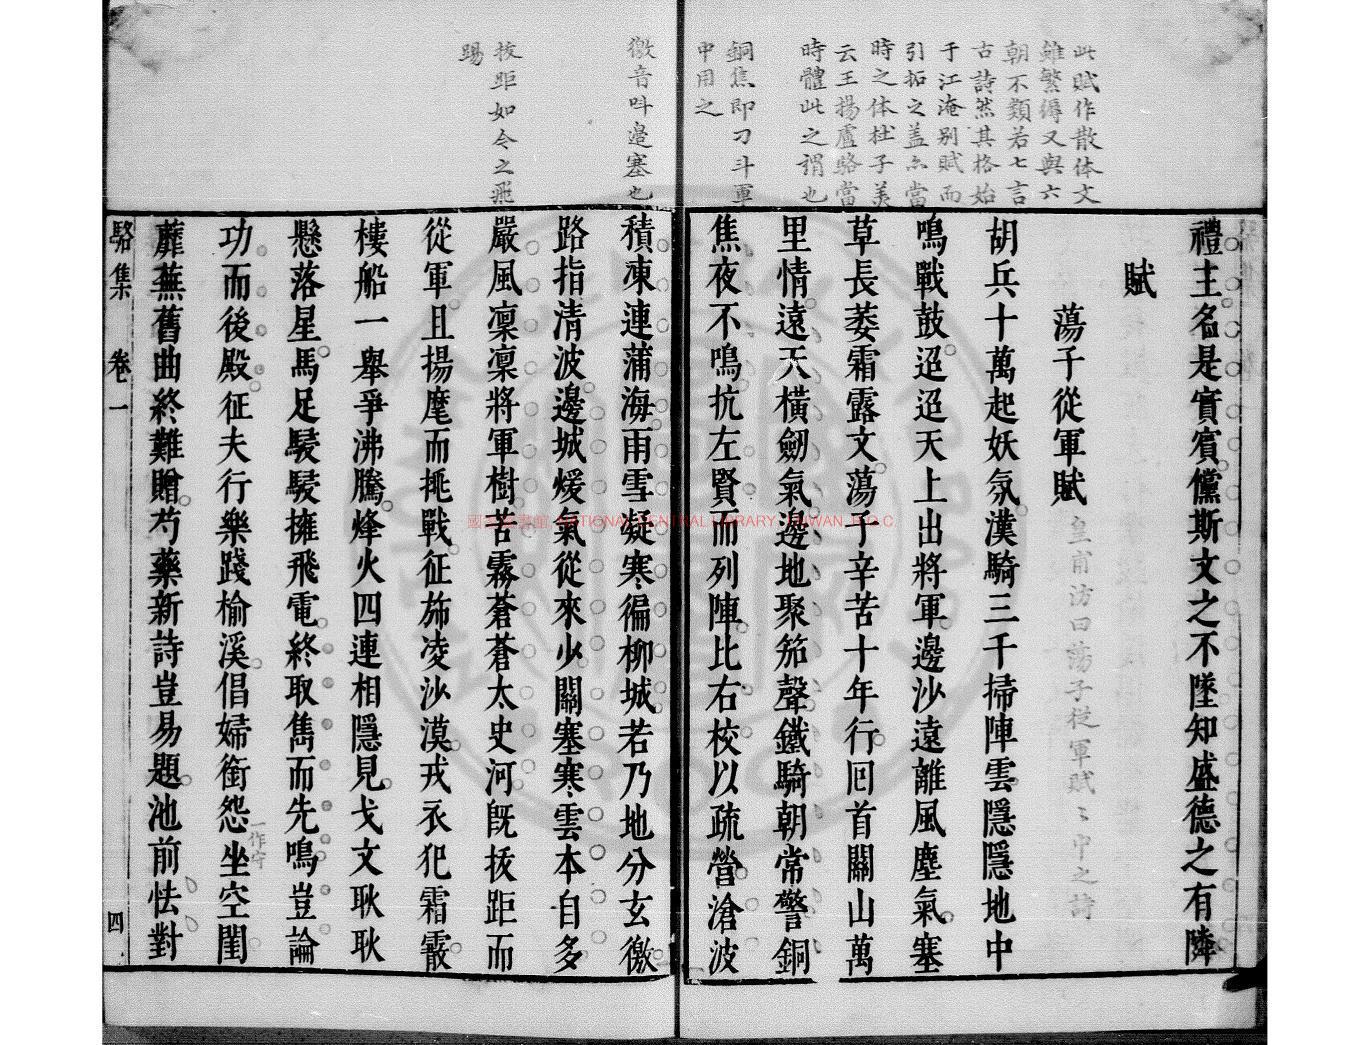 此賦作散体文
雖繁得又與六
朝不類若七言
古詩然其格始
于江淹别賦而
引拓之盖亦當
時之体杜子美
云王揚盧駱當
時體此之謂也
銅焦即刁斗軍
中用之
徼音呌邉塞也
拔距如今之飛
踢
禮主名是實賓儻斯文之不墜知盛德之有隣
賦
蕩子從軍賦 皇甫汸曰蕩子從軍賦賦中之詩
胡兵十萬起妖氛漢騎三千掃陣雲隱隱地中
鳴戰鼓迢迢天上出將軍邊沙遠離風塵氣塞
草長萎霜露文蕩子辛苦十年行囘首關山萬
里情遠天橫劒氣邊地聚笳聲鐵騎朝常警銅
焦夜不鳴抗左賢而列陣比右校以疏營滄波
積凍連蒲海雨雪凝寒徧柳城若乃地分玄徼
路指清波邊城煖氣從來少關塞寒雲本自多
嚴風凛凛將軍樹苦霧蒼蒼太史河旣抜距而
從軍且揚麾而挑戰征斾凌沙漠戎衣犯霜霰
樓船一舉爭沸騰烽火四連相隱見戈文耿耿
懸落星馬足駸駸擁飛電終取雋而先鳴豈論
功而後殿征夫行樂踐榆溪倡婦銜怨坐空閨
一作守
蘼蕪舊曲終難贈芍藥新詩豈易題池前怯對
駱集 卷一 四
國家圖書館 NATIONAL CENTRAL LIBRARY, TAIWAN, R.O.C.